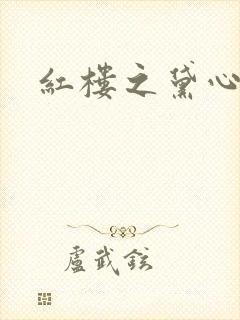 紅樓之黛心
盧武鉉